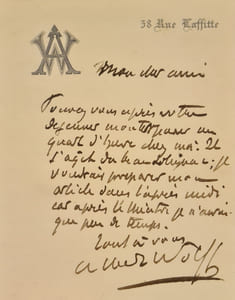 38 Rue Laffitte
AW
Mon cher ami
Pouvez vous après votre
déjeuner monter passer un
quart d'heure chez moi. Il
s'agit du ; je
voudrais préparer mon
article dans l'après midi
car après le théâtre je n'aurai
que peu de temps.
Tout à vous
Albert Wolff